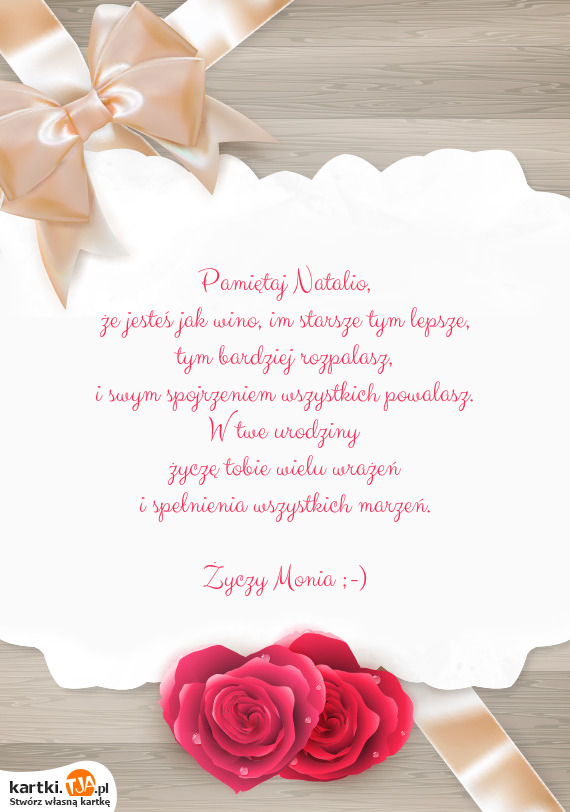 Pamiętaj Natalio,
że jesteś jak wino, im starsze tym lepsze,
tym bardziej rozpalasz,
i swym spojrzeniem wszystkich powalasz.
W twe urodziny
życzę tobie wielu wrażeń
i spełnienia wszystkich marzeń.
Życzy Monia ;-)
kartki.TJA.pl
Stwórz własną kartkę